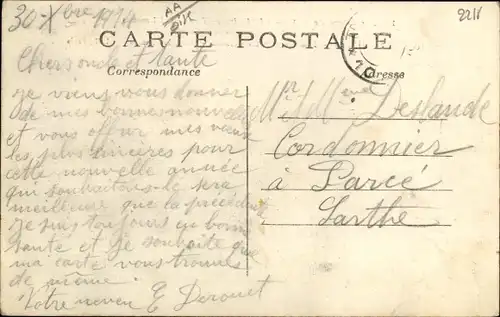 30 Xbre 1914
2211
CARTE POSTALE
Correspondance
Adresse
Chers oncle et tante
je viens vous donner
de mes bonnes nouvelles
et vous offrir mes vœux
les plus sincères pour
cette nouvelle année
qui souhaitons-le sera
meilleure que la précédente
je suis toujours en bonne
santé et je souhaite que
ma carte vous trouve
de même.
Votre neveu E Derouet
Mr et Mme Deslande
Cordonnier
à Parcé
Sarthe